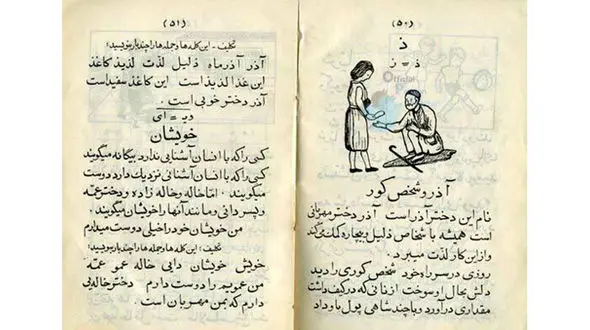 (۵۰)
ذ
ذ = ز
Official
آذر و شخص کور
نام این دختر آذر است . آذر دختر مهربانی
است همیشه با شخاص ذلیل و بیچاره کمک میکند
و از این کار لذت میبرد .
روزی در سر راه خود شخص کوری را دید
دلش بحال او سوخت از نانی که در کیف داشت
مقداری درآورد و با چند شاهی پول باو داد
(۵۱)
تکلیف - این کلمه ها و جمله ها را چند بار بنویسید :
آذر آذرماه ذلیل لذت لذیذ کاغذ
این غذا لذیذ است این کاغذ سفید است
آذر دختر خوبی است .
= ای
خویشان
کسی را که با انسان آشنائی ندارد بیگانه میگویند
کسی را که با انسان آشنائی نزدیک دارد دوست
میگویند . اما خاله و خاله زاده و دختر عمّه
و پسر دائی و مانند آنها را خویشان میگویند .
من خویشان خود را خیلی دوست میدارم
تکلیف : این کلمه ها و جمله ها را چند بار بنویسید :
خویش خویشان دایی خاله عمو عمّه
من عمویم را دوست دارم دختر خاله یی
دارم که بمن مهربان است .